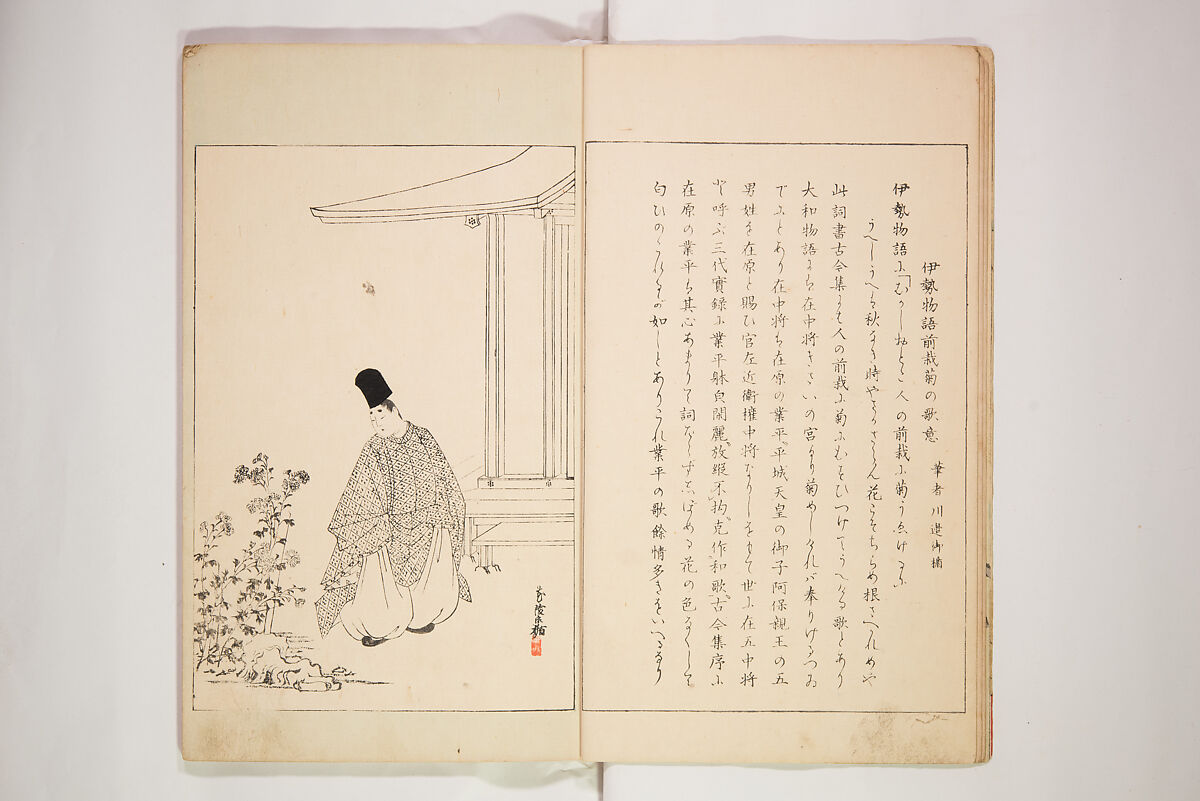 伊勢物語前栽菊の歌意
筆者川邊御楯
伊勢物語に「むかしおとこ人の前栽に菊うゑけるに
うへしうへは秋なき時やさかさらん花こそちらめ根さへかれめや
此詞書古今集には人の前栽に菊にむすひつけてうへける歌とあり
大和物語には在中将きさいの宮より菊めしければ奉りけるつゐ
でにとあり在中将は在原の業平平城天皇の御子阿保親王の五
男姓を在原と賜ひ官左近衛権中将なりしをもて世に在五中将
と呼ぶ三代實録に業平躰貌閑麗放縦不拘克作和歌古今集序に
在原の業平は其心あまりて詞たらずしぼめる花の色なくして
匂ひのこれるが如しとありこれ業平の歌餘情多きをいへるなり